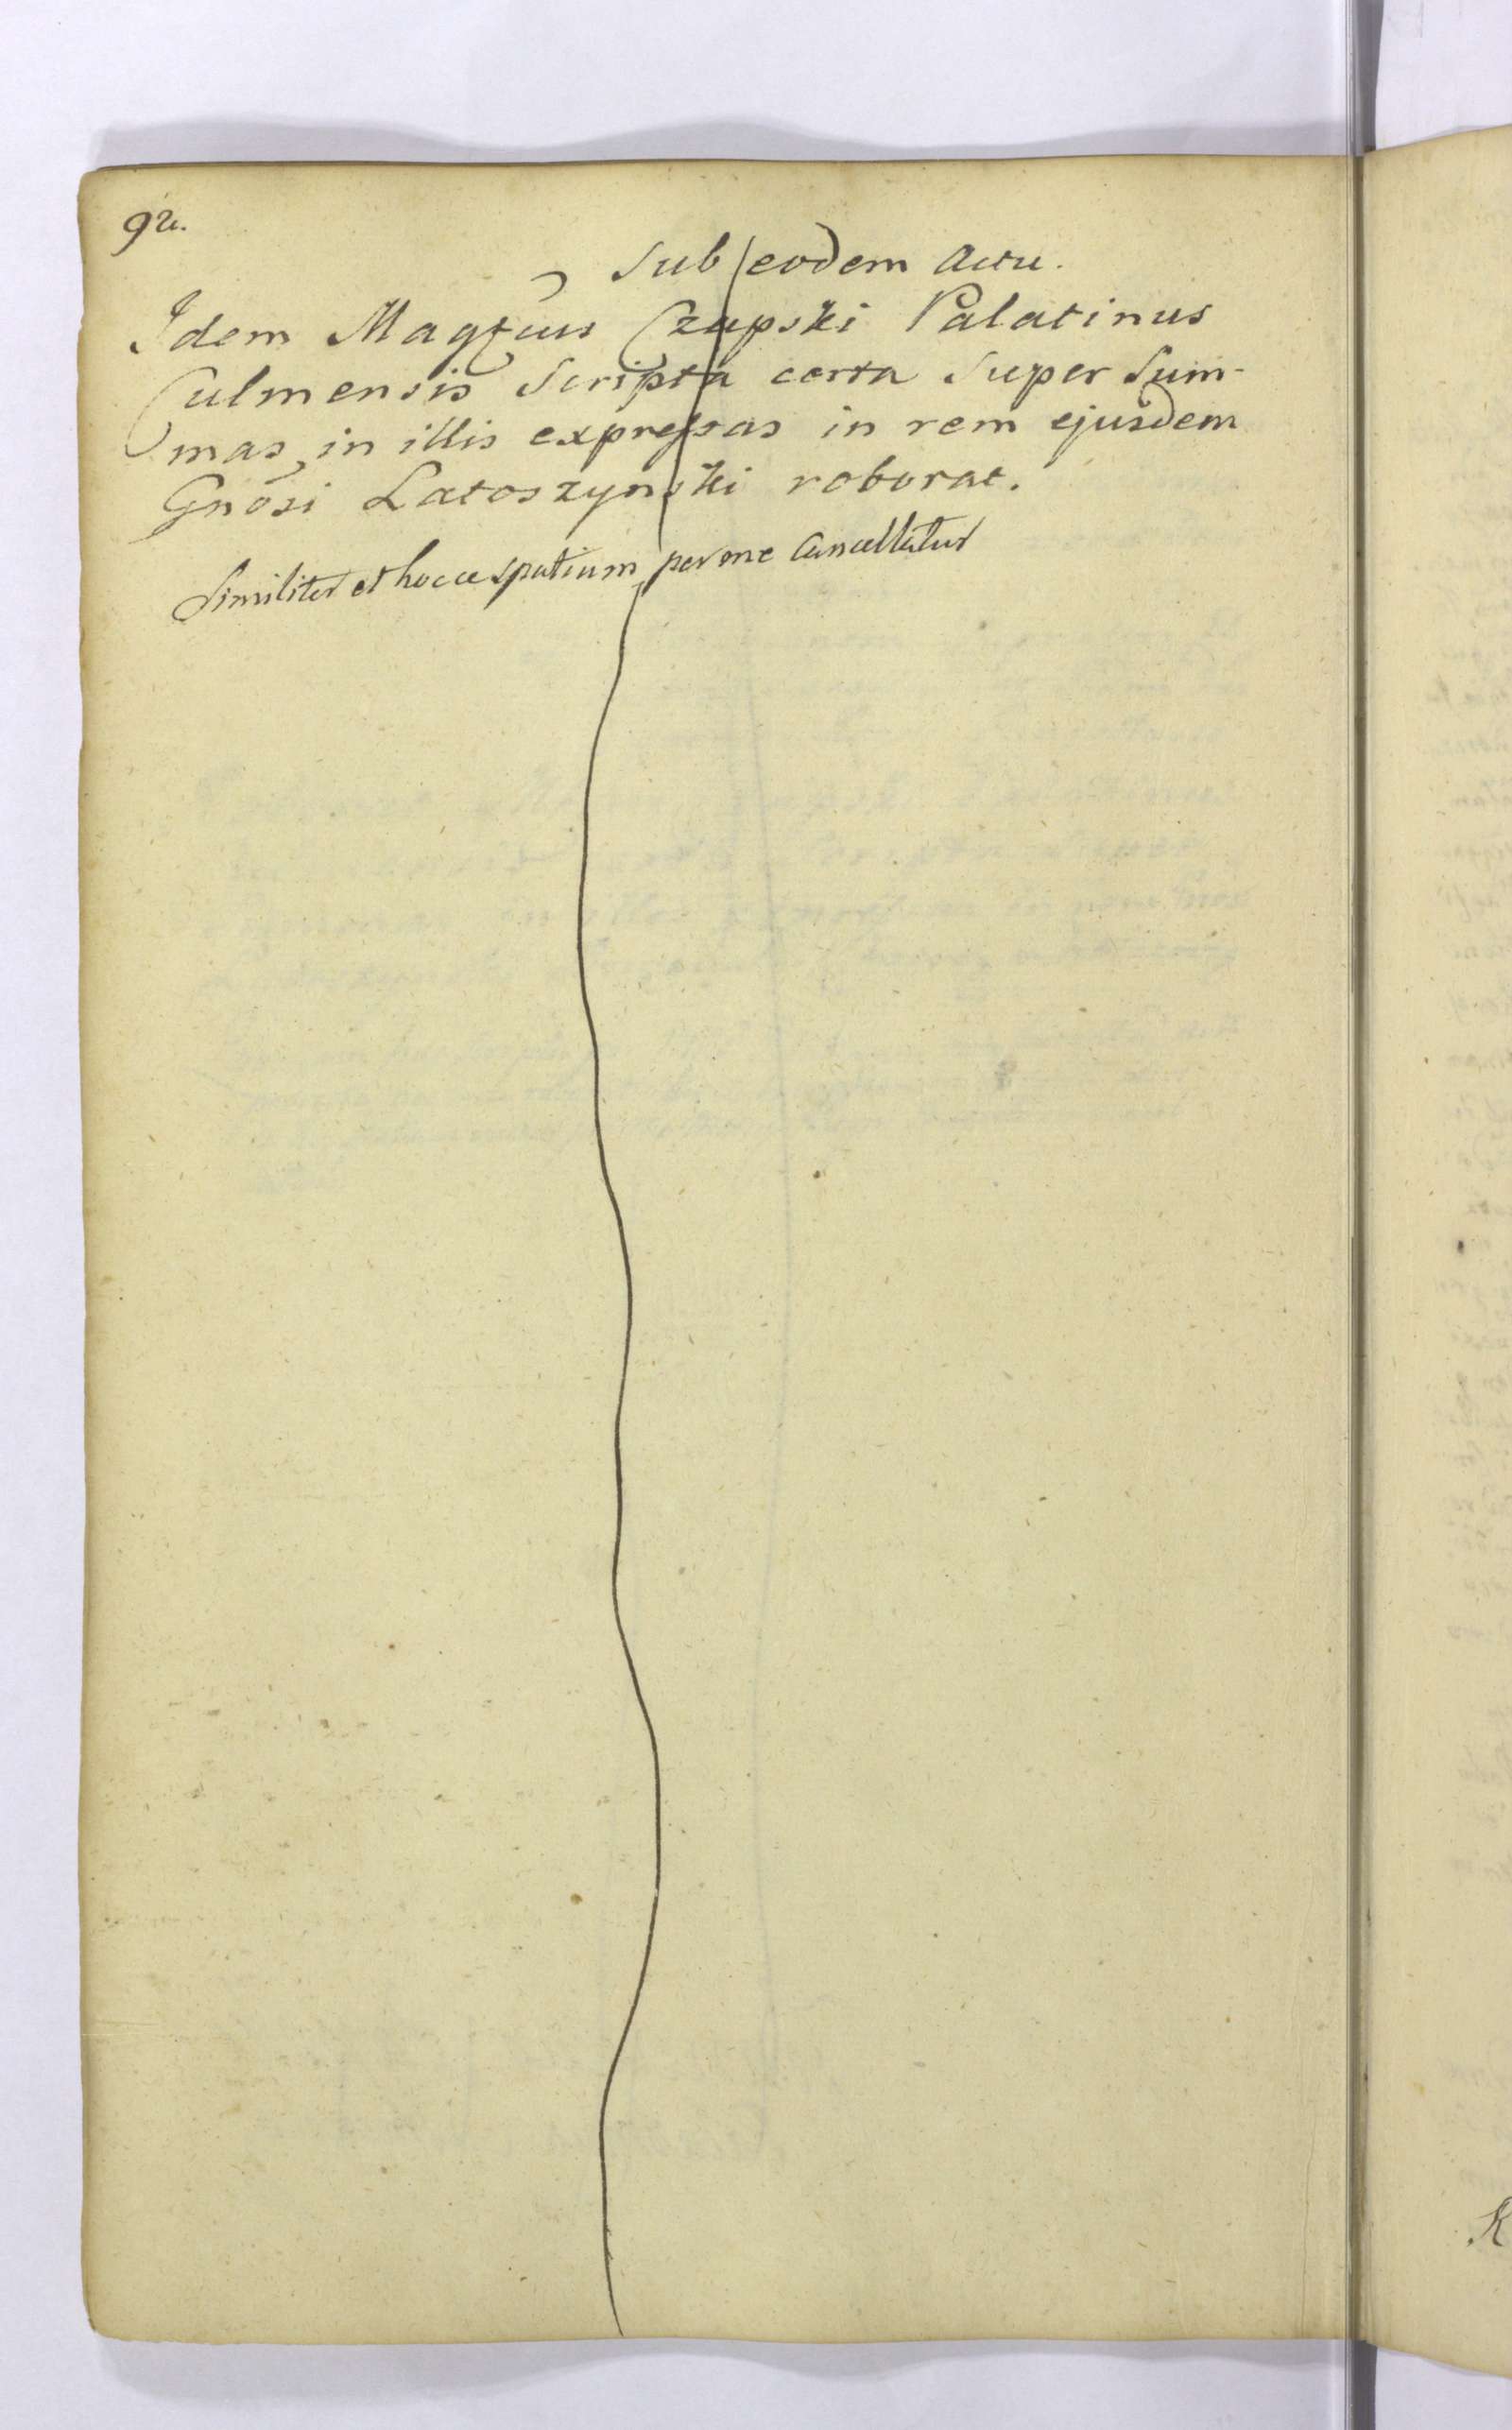 92.
Sub eodem Actu.
Idem Magfcus Czapski Palatinus
Culmensis Scripta certa super Sum-
mas in illis expressas in rem ejusdem
Gnosi Latoszynski roborat.
Similiter et hocce spatium per me Cancellatur